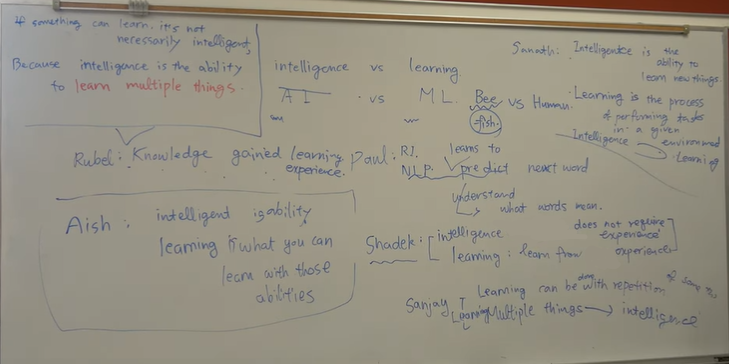 If something can learn. it's not
necessarily intelligent,
Because intelligence is the ability
to learn multiple things.
intelligence vs learning
AI vs ML. Bee vs Human.
fish.
Sanath: Intelligence is the
ability to
learn new things.
Learning is the process
of performing tasks
in a given
environment
Intelligence
Learning
Rubel: Knowledge gained learning
experience.
Paul: learns to
NLP. predict next word
understand
what words mean.
Aish: intelligent is ability
learning is what you can
learn with those
abilities
Shadek: intelligence does not require
experience
learning: learn from experience
Learning can be done with repetition of same
Sanjay Learning Multiple things → intelligence